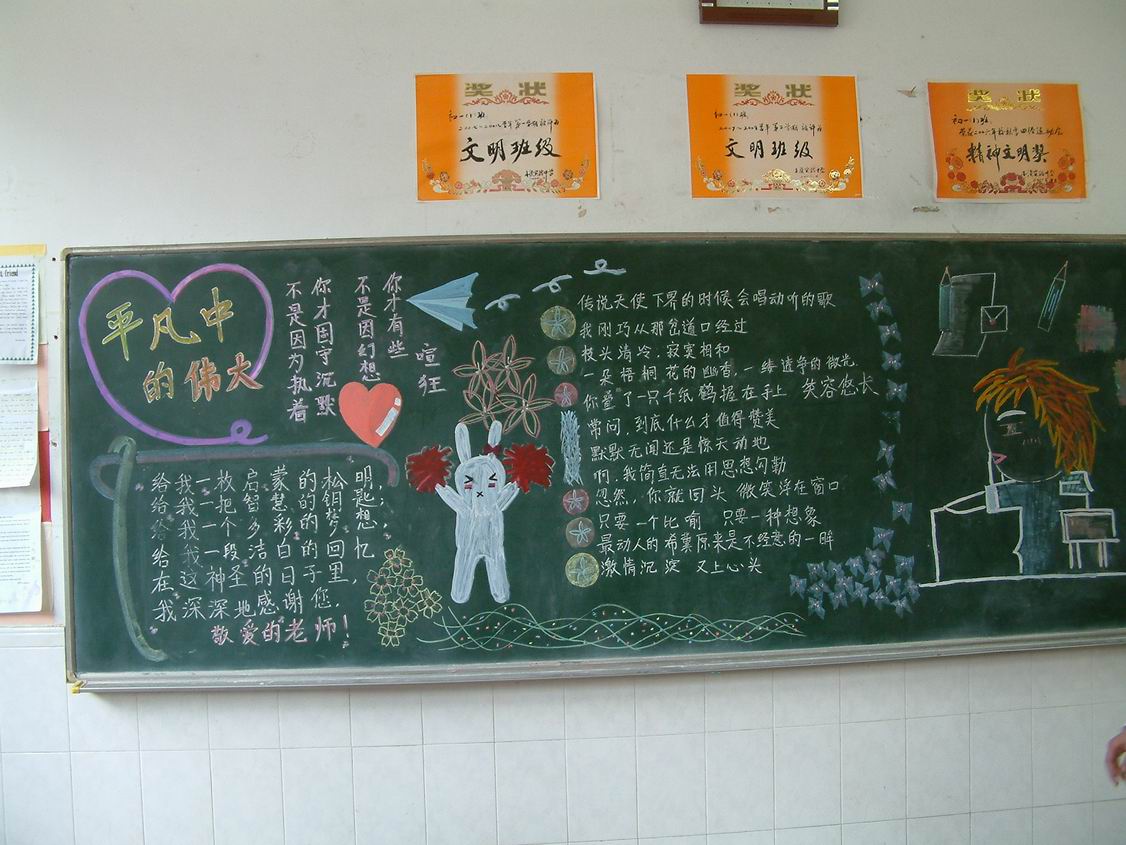 奖状
初一(1)班
文明班级
奖状
初一(1)班
文明班级
奖状
初一(1)班
精神文明奖
平凡中
的伟大
不是因为执着
你才固守沉默
不是因幻想
你才有些
喧狂
给我一枚启蒙的松明,
给我一把智慧的钥匙,
给我一个多彩的梦想,
给我一段洁白的回忆,
在这神圣的日子里,
我深深地感谢您,
敬爱的老师!
传说天使下界的时候会唱动听的歌
我刚巧从那岔道口经过
枝头清冷,寂寞相和
一朵梧桐花的幽香,一缕 的微光
你叠了一只千纸鹤握在手上 笑容悠长
常问,到底什么才值得赞美
默默无闻还是惊天动地
啊,我简直无法用思想勾勒
忽然,你就回头 微笑浮在窗口
只要一个比喻 只要一种想象
最动人的希冀原来是不经意的一眸
激情沉淀 又上心头